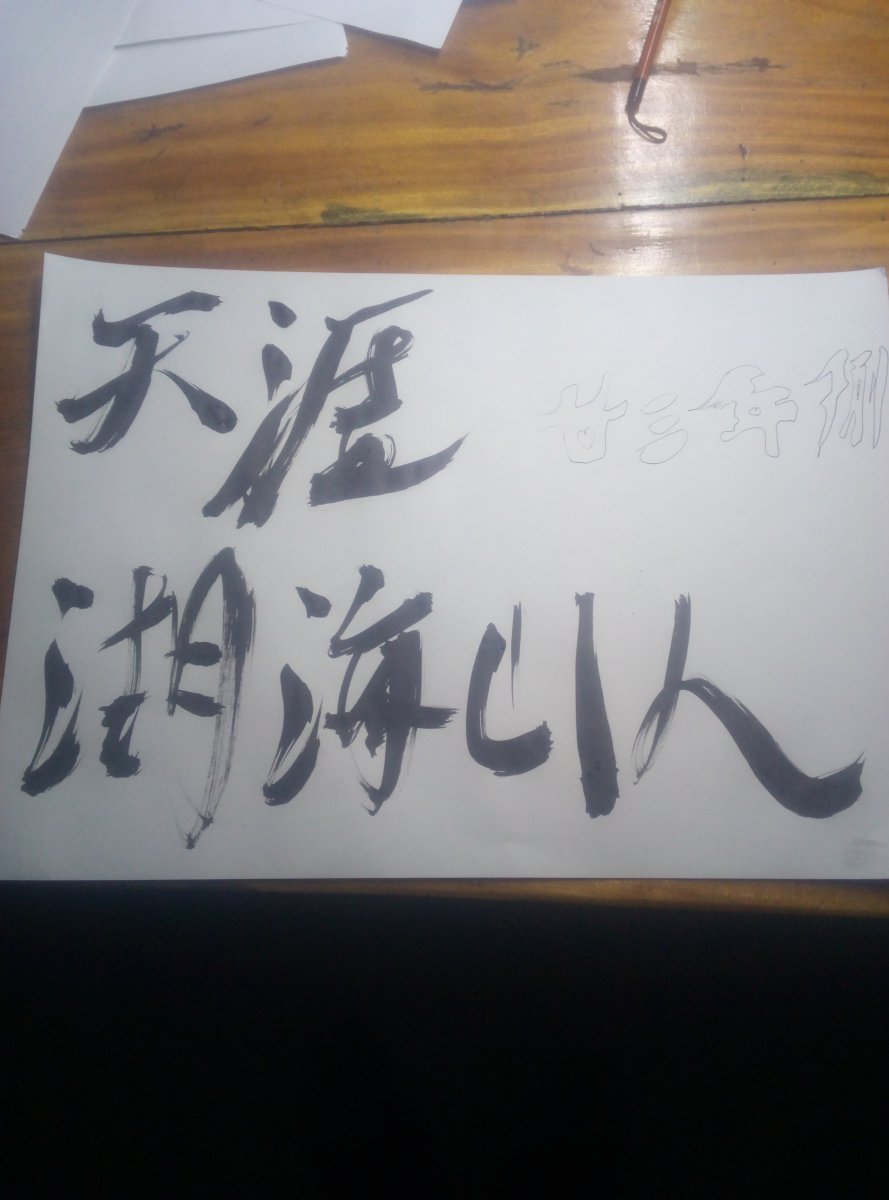 天涯
廿三年
湖海山人